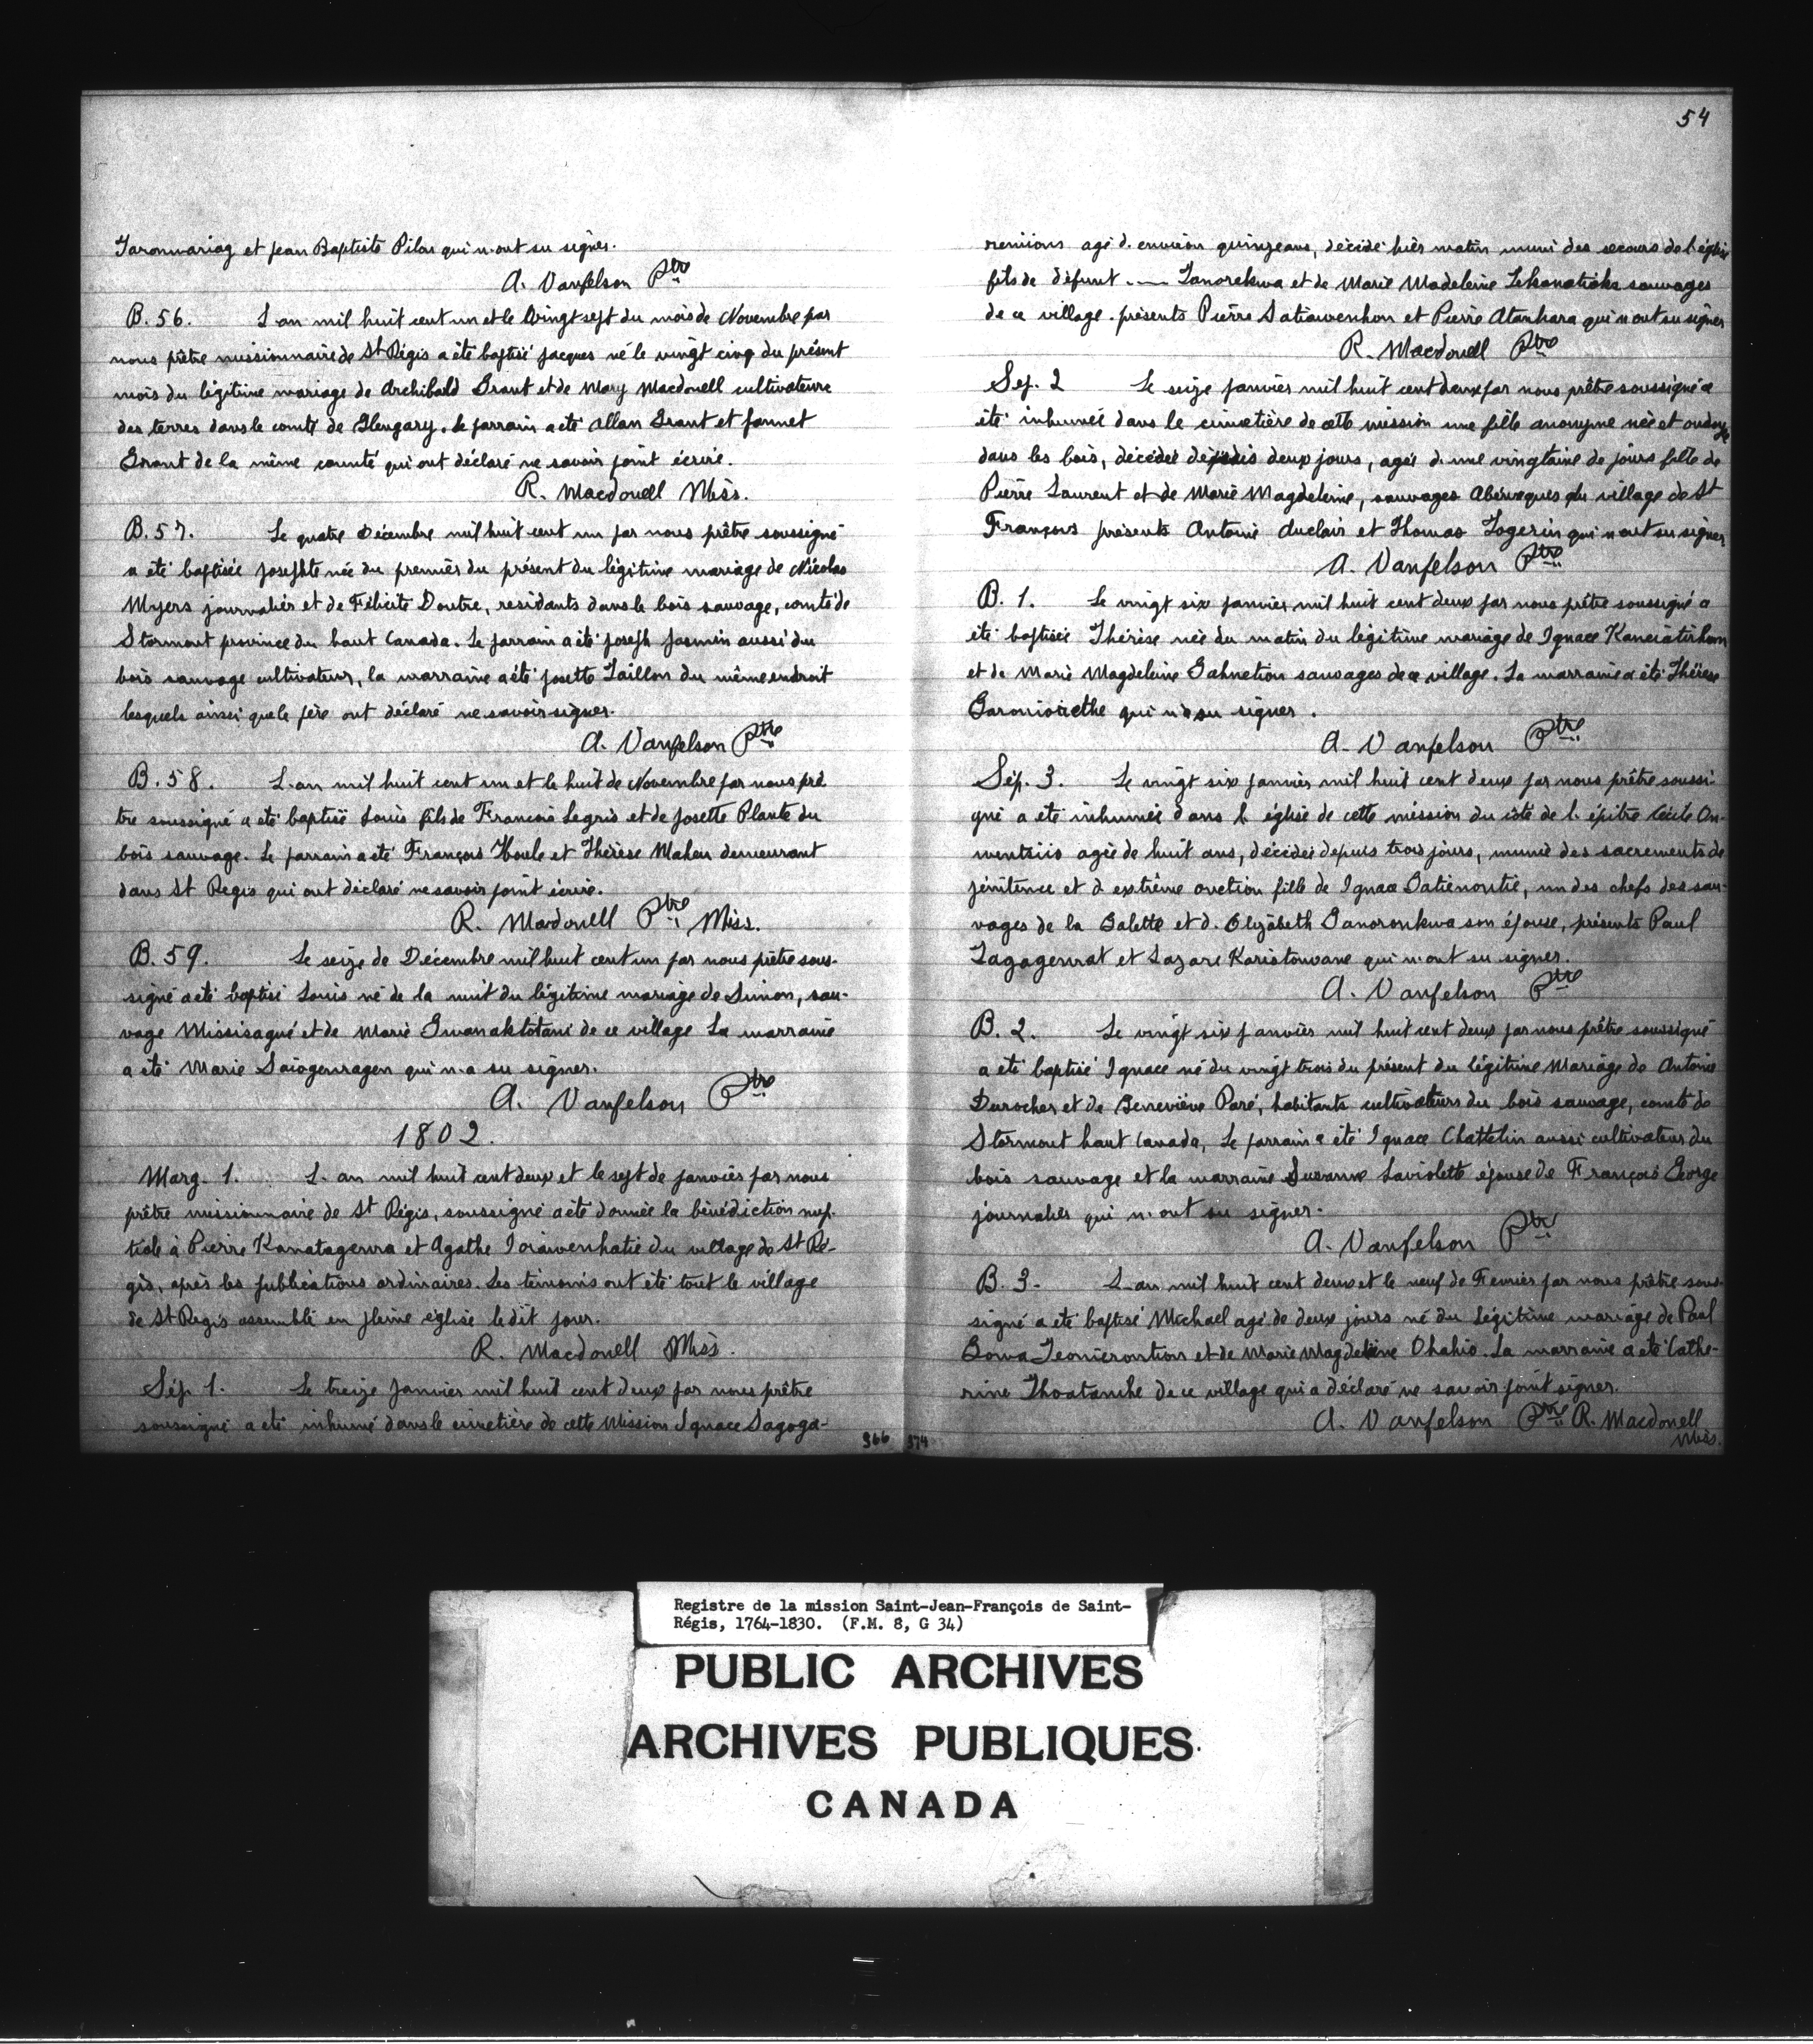 Taronwariag et jean Baptiste Pilon qui n'ont su signer.
A. Vanfelson Ptre
B. 56. L'an mil huit cent un et le vingt sept du mois de Novembre par
nous prêtre missionnaire de St Régis a été baptisé jacques né le vingt cinq du présent
mois du légitime mariage de Archibald Grant et de Mary Macdonell cultivateurs
des terres dans le comté de Glengary. le parrain a été Allan Grant et jannet
Grant de la même counté qui ont déclaré ne savoir point écrire.
R. Macdonell Miss.
B. 57. Le quatre Décembre mil huit cent un par nous prêtre soussigné
a été baptisée josephte née du premier du présent du légitime mariage de Nicolas
Myers journalier et de Félicité Doutre, residants dans le bois sauvage, comté de
Stormont province du haut Canada. Le parrain a été joseph Jasmin aussi du
bois sauvage cultivateur, la marraine a été josette Taillon du même endroit
lesquels ainsi que le père ont déclaré ne savoir signer.
A. Vanfelson Ptre
B. 58. L'an mil huit cent un et le huit de Novembre par nous prê
tre soussigné a été baptisé Louis fils de François Legris et de josette Plante du
bois sauvage. Le parrain a été François Houle et Thérèse Maheu demeurant
dans St Regis qui ont déclaré ne savoir point écrire.
R. Macdonell Ptre Miss.
B. 59. Le seize de Décembre mil huit cent un par nous prêtre sous-
signé a été baptisé Louis né de la nuit du légitime mariage de Simon, sau-
vage Missisagué et de Marie Gwanaktotani de ce village La marraine
a été Marie Saiogenragen qui n'a su signer.
A. Vanfelson Ptre
1802.
Marg. 1. L'an mil huit cent deux et le sept de janvier par nous
prêtre missionnaire de St Régis, soussigné a été donnée la bénédiction nup-
tiale à Pierre Kanatagenra et Agathe Ioiawenhatie du village de St Ré-
gis, après les publications ordinaires. Les témoins ont été tout le village
de St Regis assemblé en pleine église le dit jour.
R. Macdonell Miss.
Sép. 1. Le treize janvier mil huit cent deux par nous prêtre
soussigné a été inhumé dans le cimetière de cette Mission Ignace Sagoga-
366
54
reniions agé d'environ quinze ans, décédé hièr matin muni des secours de l'église
fils de défunt --- Tanorekwa et de Marie Madeleine Tekanatioke sauvages
de ce village. présents Pierre Satiawenhon et Pierre Atanhara qui n'ont su signer
R. Macdonell Ptre
Sep. 2 Le seize janvier mil huit cent deux par nous prêtre soussigné a
été inhumée dans le cimetière de cette mission une fille anonyme née et ondoyée
dans les bois, décédée depuis deux jours, agée d'une vingtaine de jours fille de
Pierre Laurent et de Marie Magdeleine, sauvages Abénaques du village de St
François présents Antoine Auclair et Thomas Togerin qui n'ont su signer
A. Vanfelson Ptre
B. 1. Le vingt six janvier mil huit cent deux par nous prêtre soussigné a
été baptisée Thérèse née du matin du légitime mariage de Ignace Kaneiaterhon
et de Marie Magdeleine Gahnetion sauvages de ce village. La marraine a été Thérèse
Garonioiethe qui n'a su signer.
A. Vanfelson Ptre
Sép. 3. Le vingt six janvier mil huit cent deux par nous prêtre soussi-
gné a été inhumée dans l'église de cette mission du côté de l'épitre Cécile On-
wentsiio agée de huit ans, décédée depuis trois jours, munie des sacrements de
pénitence et d'extrême onction fille de Ignace Gatienontié, un des chefs des sau-
vages de la Galette et d'Elizabeth Ganoronkwa son épouse, présents Paul
Tagagenrat et Lazare Kariatowane qui n'ont su signer.
A. Vanfelson Ptre
B. 2. Le vingt six janvier mil huit cent deux par nous prêtre soussigné
a été baptisé Ignace né du vingt trois du présent du légitime Mariage de Antoine
Durocher et de Geneviève Paré, habitants cultivateurs du bois sauvage, comté de
Stormont haut Canada, Le parrain a été Ignace Chattelin aussi cultivateur du
bois sauvage et la marraine Suzanne Laviolette épouse de François George
journalier qui n'ont su signer.
A. Vanfelson Ptre
B. 3. L'an mil huit cent deux et le neuf de Fevrier par nous prêtre sous-
signé a été baptisé Michael agé de deux jours né du Légitime mariage de Paul
Sowa Teonierontion et de Marie Magdeleine Ohahio. La marraine a été Cathe-
rine Thoatanhe de ce village qui a déclaré ne savoir point signer.
A. Vanfelson Ptre R. Macdonell
Miss.
374
Registre de la mission Saint-Jean-François de Saint-
Régis, 1764-1830. (F.M. 8, G 34)
PUBLIC ARCHIVES
ARCHIVES PUBLIQUES
CANADA